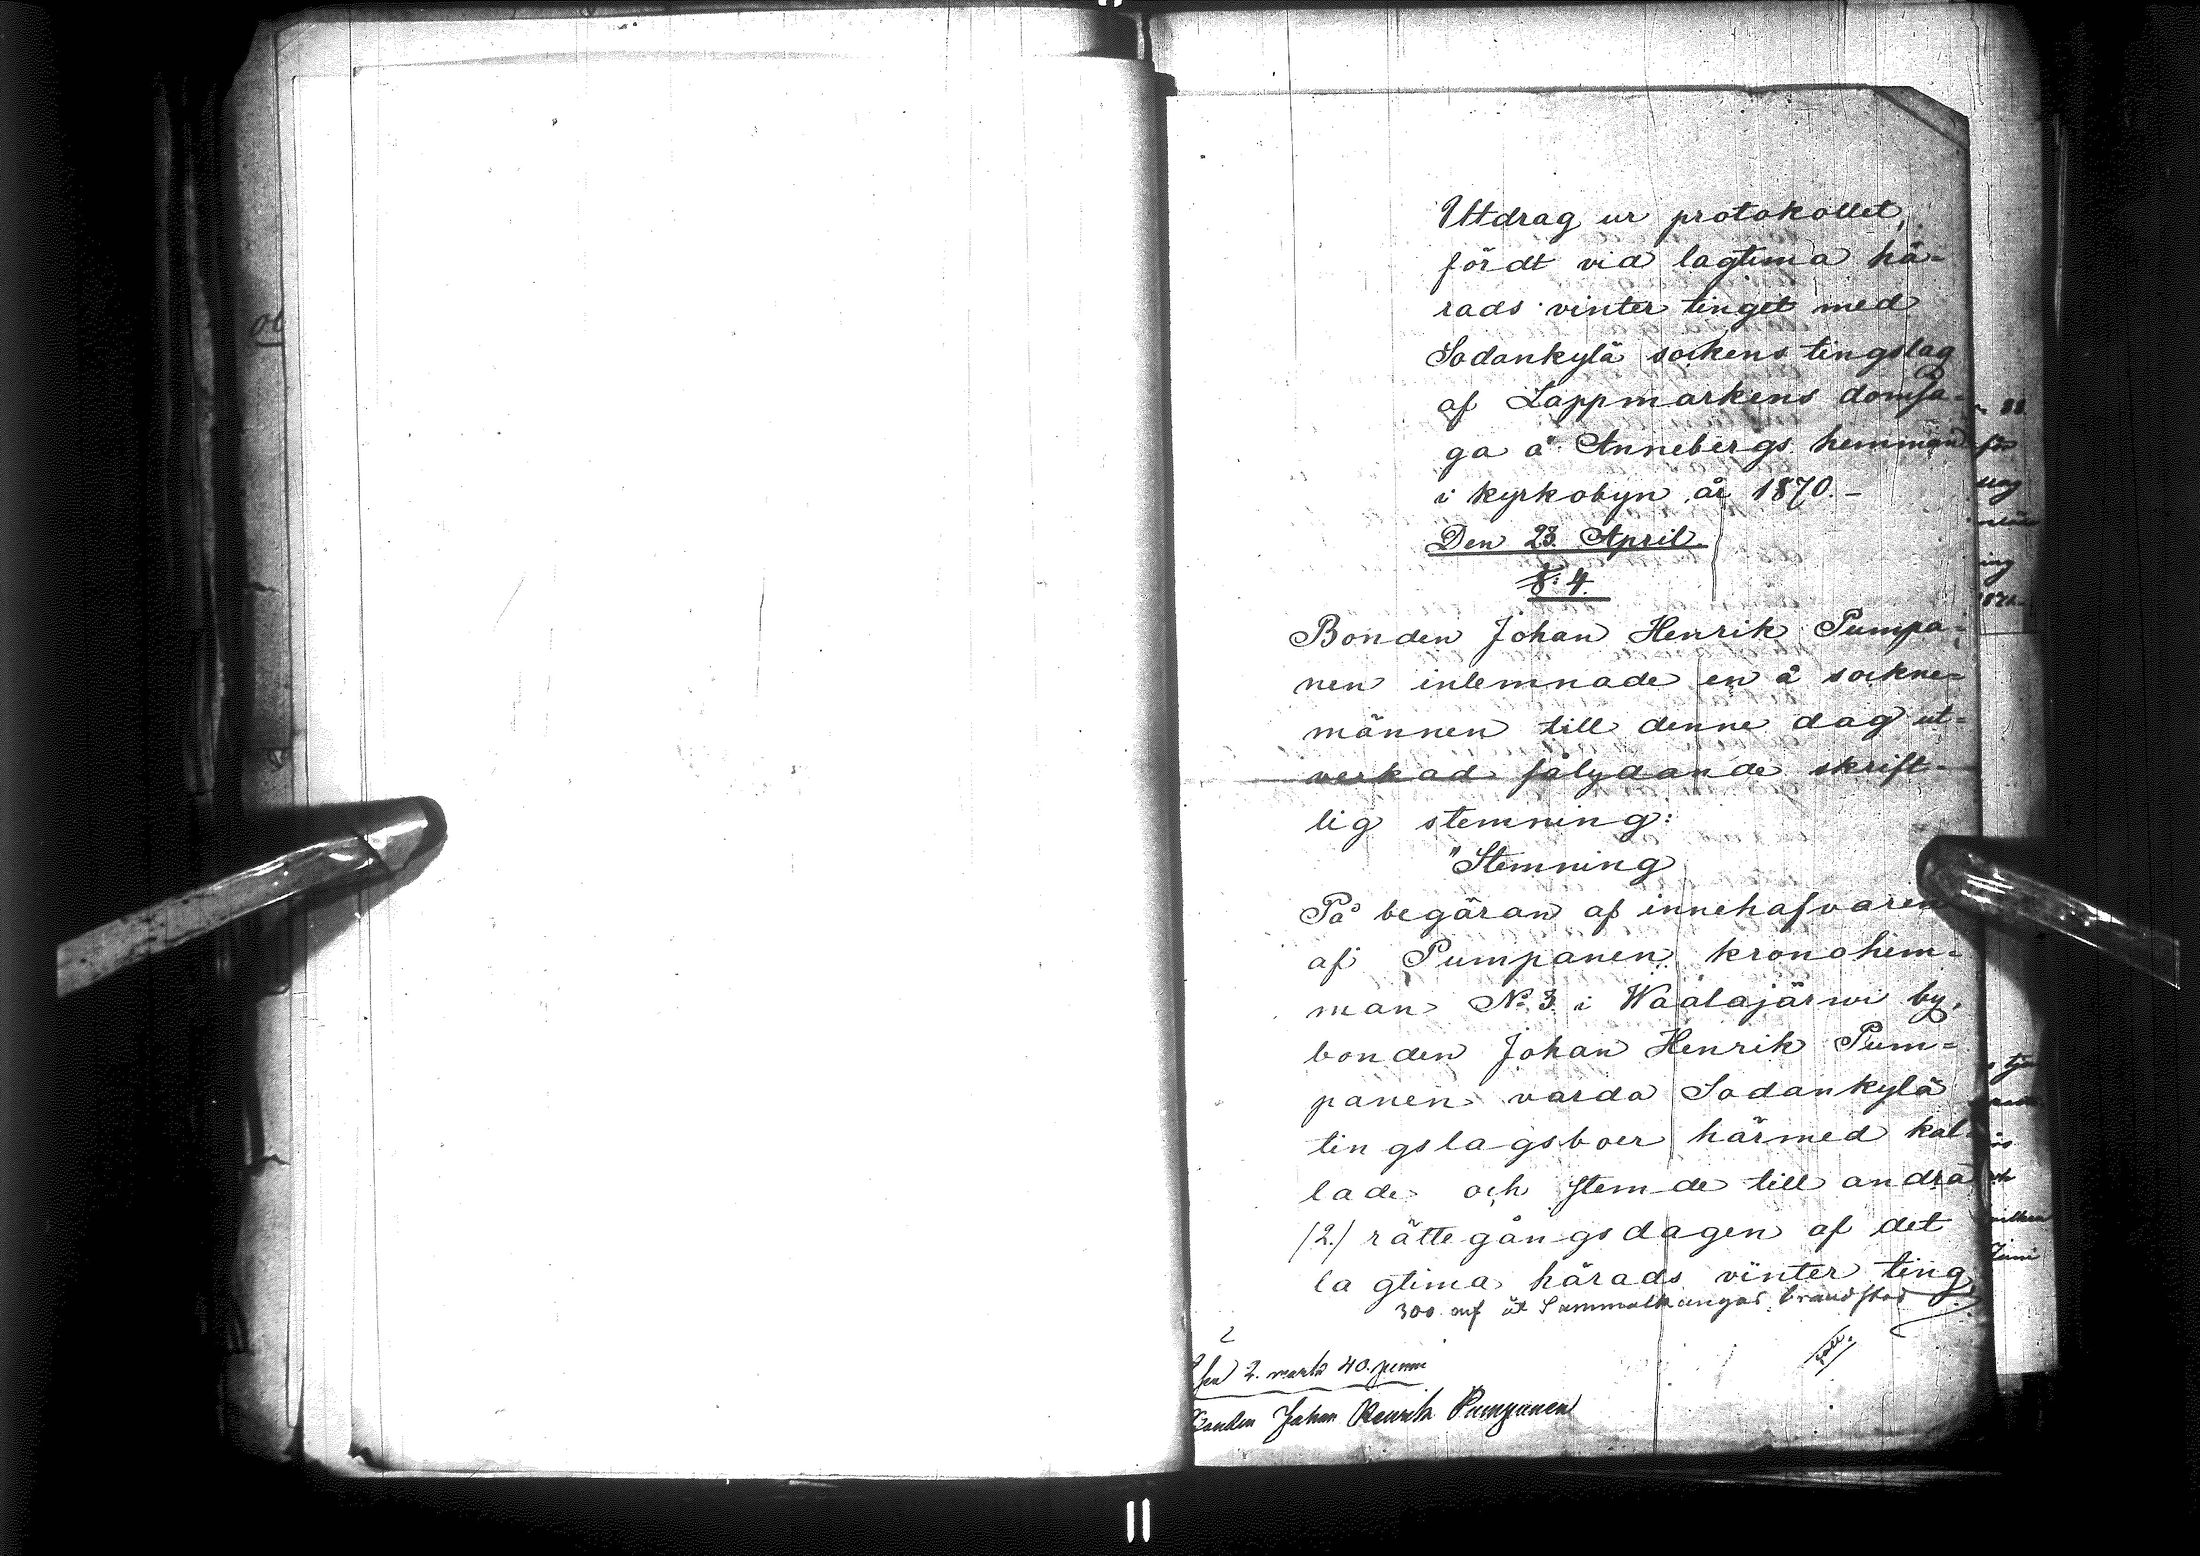 Utdrag ur protokollet,
fördt vid lagtima hä-
rads vinter tinget med
Sodankylä sockens tingslag
af Lappmarkens domsa-
ga å Annebergs hemman
i kyrkobyn år 1870.-
Den 23. April.
§. 4.
Bonden Johan Henrik Pumpa-
nen inlemnade en å sockne-
männen till denne dag ut-
verkad sålydande skrift-
lig stemning:
"Stemning
På begäran af innehafvaren
af Pumpanen kronohem-
man No 3 i Waalajärwi by,
bonden Johan Henrik Pum-
panen varda Sodankylä
tingslagsboer härmed kal-
lade och stemde till andra
(2.) rättegångsdagen af det
lagtima härads vinter ting
300 mf åt brandstod
2
2. mark 40. penni
Bonden Johan Henrik Pumpanen